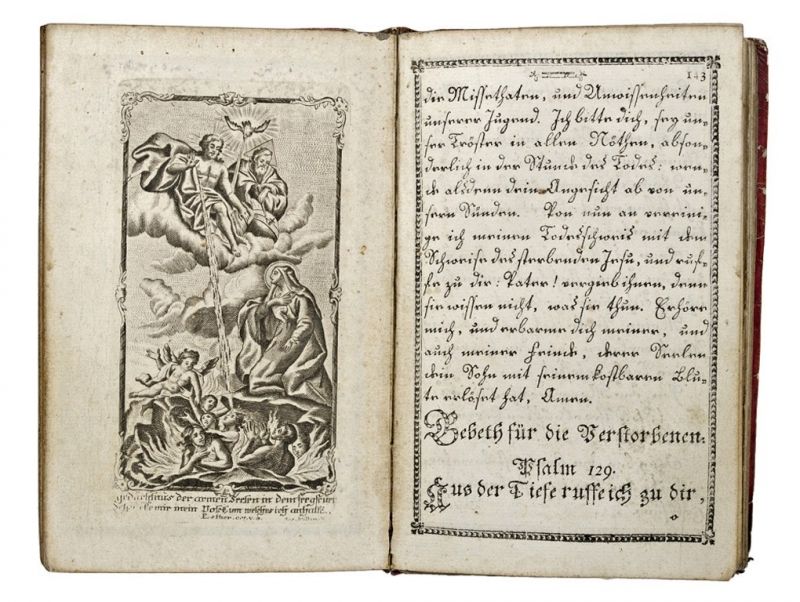 der armen Seelen in dem fegfeur
mir mein Volck um welches ich anhalte.
Esther. 
143
die Missethaten, und Unwissenheiten
unserer Jugend. Ich bitte dich, sey un-
ser Tröster in allen Nöthen, abson-
derlich in der Stunde des Todes: wen-
de alsdenn dein Angesicht ab von un-
sern Sünden. Von nun an vereini-
ge ich meinen Todesschweis mit dem
Schweise des sterbenden Jesu, und ruf-
fe zu dir: Vater! vergieb ihnen, denn
sie wissen nicht, was sie thun. Erhöre
mich, und erbarme dich meiner, und
auch meiner Feinde, derer Seelen
dein Sohn mit seinem kostbaren Blu-
te erlöset hat, Amen.
Gebeth für die Verstorbenen.
Psalm 129.
Aus der Tiefe ruffe ich zu dir,